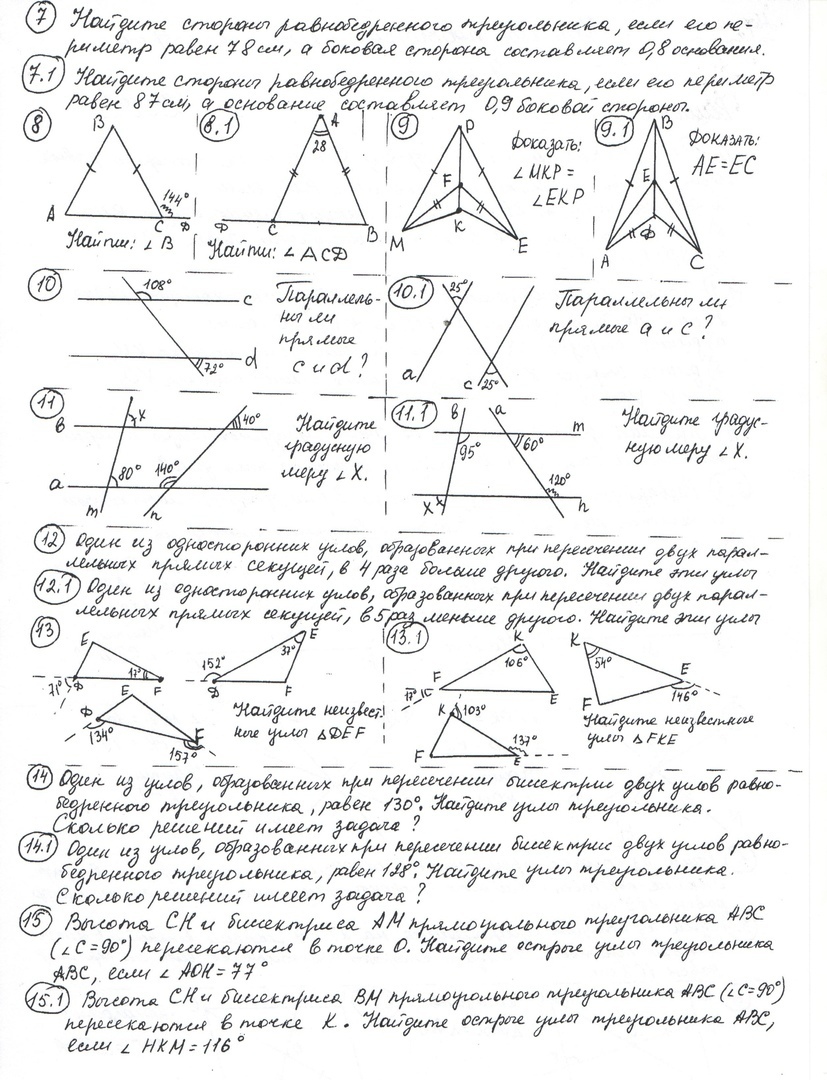 7 Найдите стороны равнобедренного треугольника, если его пе-
риметр равен 78 см, а боковая сторона составляет 0,8 основания.
7.1 Найдите стороны равнобедренного треугольника, если его периметр
равен 87 см, а основание составляет 0,9 боковой стороны.
8
B
A
144°
C
D
Найти: ∠B
8.1
A
28
D
C
B
Найти: ∠ACD
9
P
F
K
M
E
Доказать:
∠MKP =
∠EKP
9.1
B
E
Ф
A
C
Доказать:
AE=EC
10
108°
c
72°
d
Параллель-
ны ли
прямые
c и d?
10.1
25°
a
c
25°
Параллельны ли
прямые a и c?
11
x
40°
в
80°
140°
a
m
n
Найдите
градусную
меру ∠X.
11.1
в
a
m
95°
60°
120°
x
n
Найдите градус-
ную меру ∠X.
12 Один из односторонних углов, образованных при пересечении двух парал-
лельных прямых секущей, в 4 раза больше другого. Найдите эти углы
12.1 Один из односторонних углов, образованных при пересечении двух парал-
лельных прямых секущей, в 5 раз меньше другого. Найдите эти углы
13
E
71°
D
17°
F
152°
E
37°
D
F
D
E
134°
F
157°
Найдите неизвест-
ные углы △DEF
13.1
K
106°
F
17°
E
K
54°
E
F
146°
K
103°
F
137°
E
Найдите неизвестные
углы △FKE
14 Один из углов, образованных при пересечении биссектрис двух углов равно-
бедренного треугольника, равен 130°. Найдите углы треугольника.
Сколько решений имеет задача?
14.1 Один из углов, образованных при пересечении биссектрис двух углов равно-
бедренного треугольника, равен 128°. Найдите углы треугольника.
Сколько решений имеет задача?
15 Высота CH и биссектриса AM прямоугольного треугольника ABC
(∠C=90°) пересекаются в точке O. Найдите острые углы треугольника
ABC, если ∠AOH=77°
15.1 Высота CH и биссектриса BM прямоугольного треугольника ABC (∠C=90°)
пересекаются в точке K. Найдите острые углы треугольника ABC,
если ∠HKM=116°